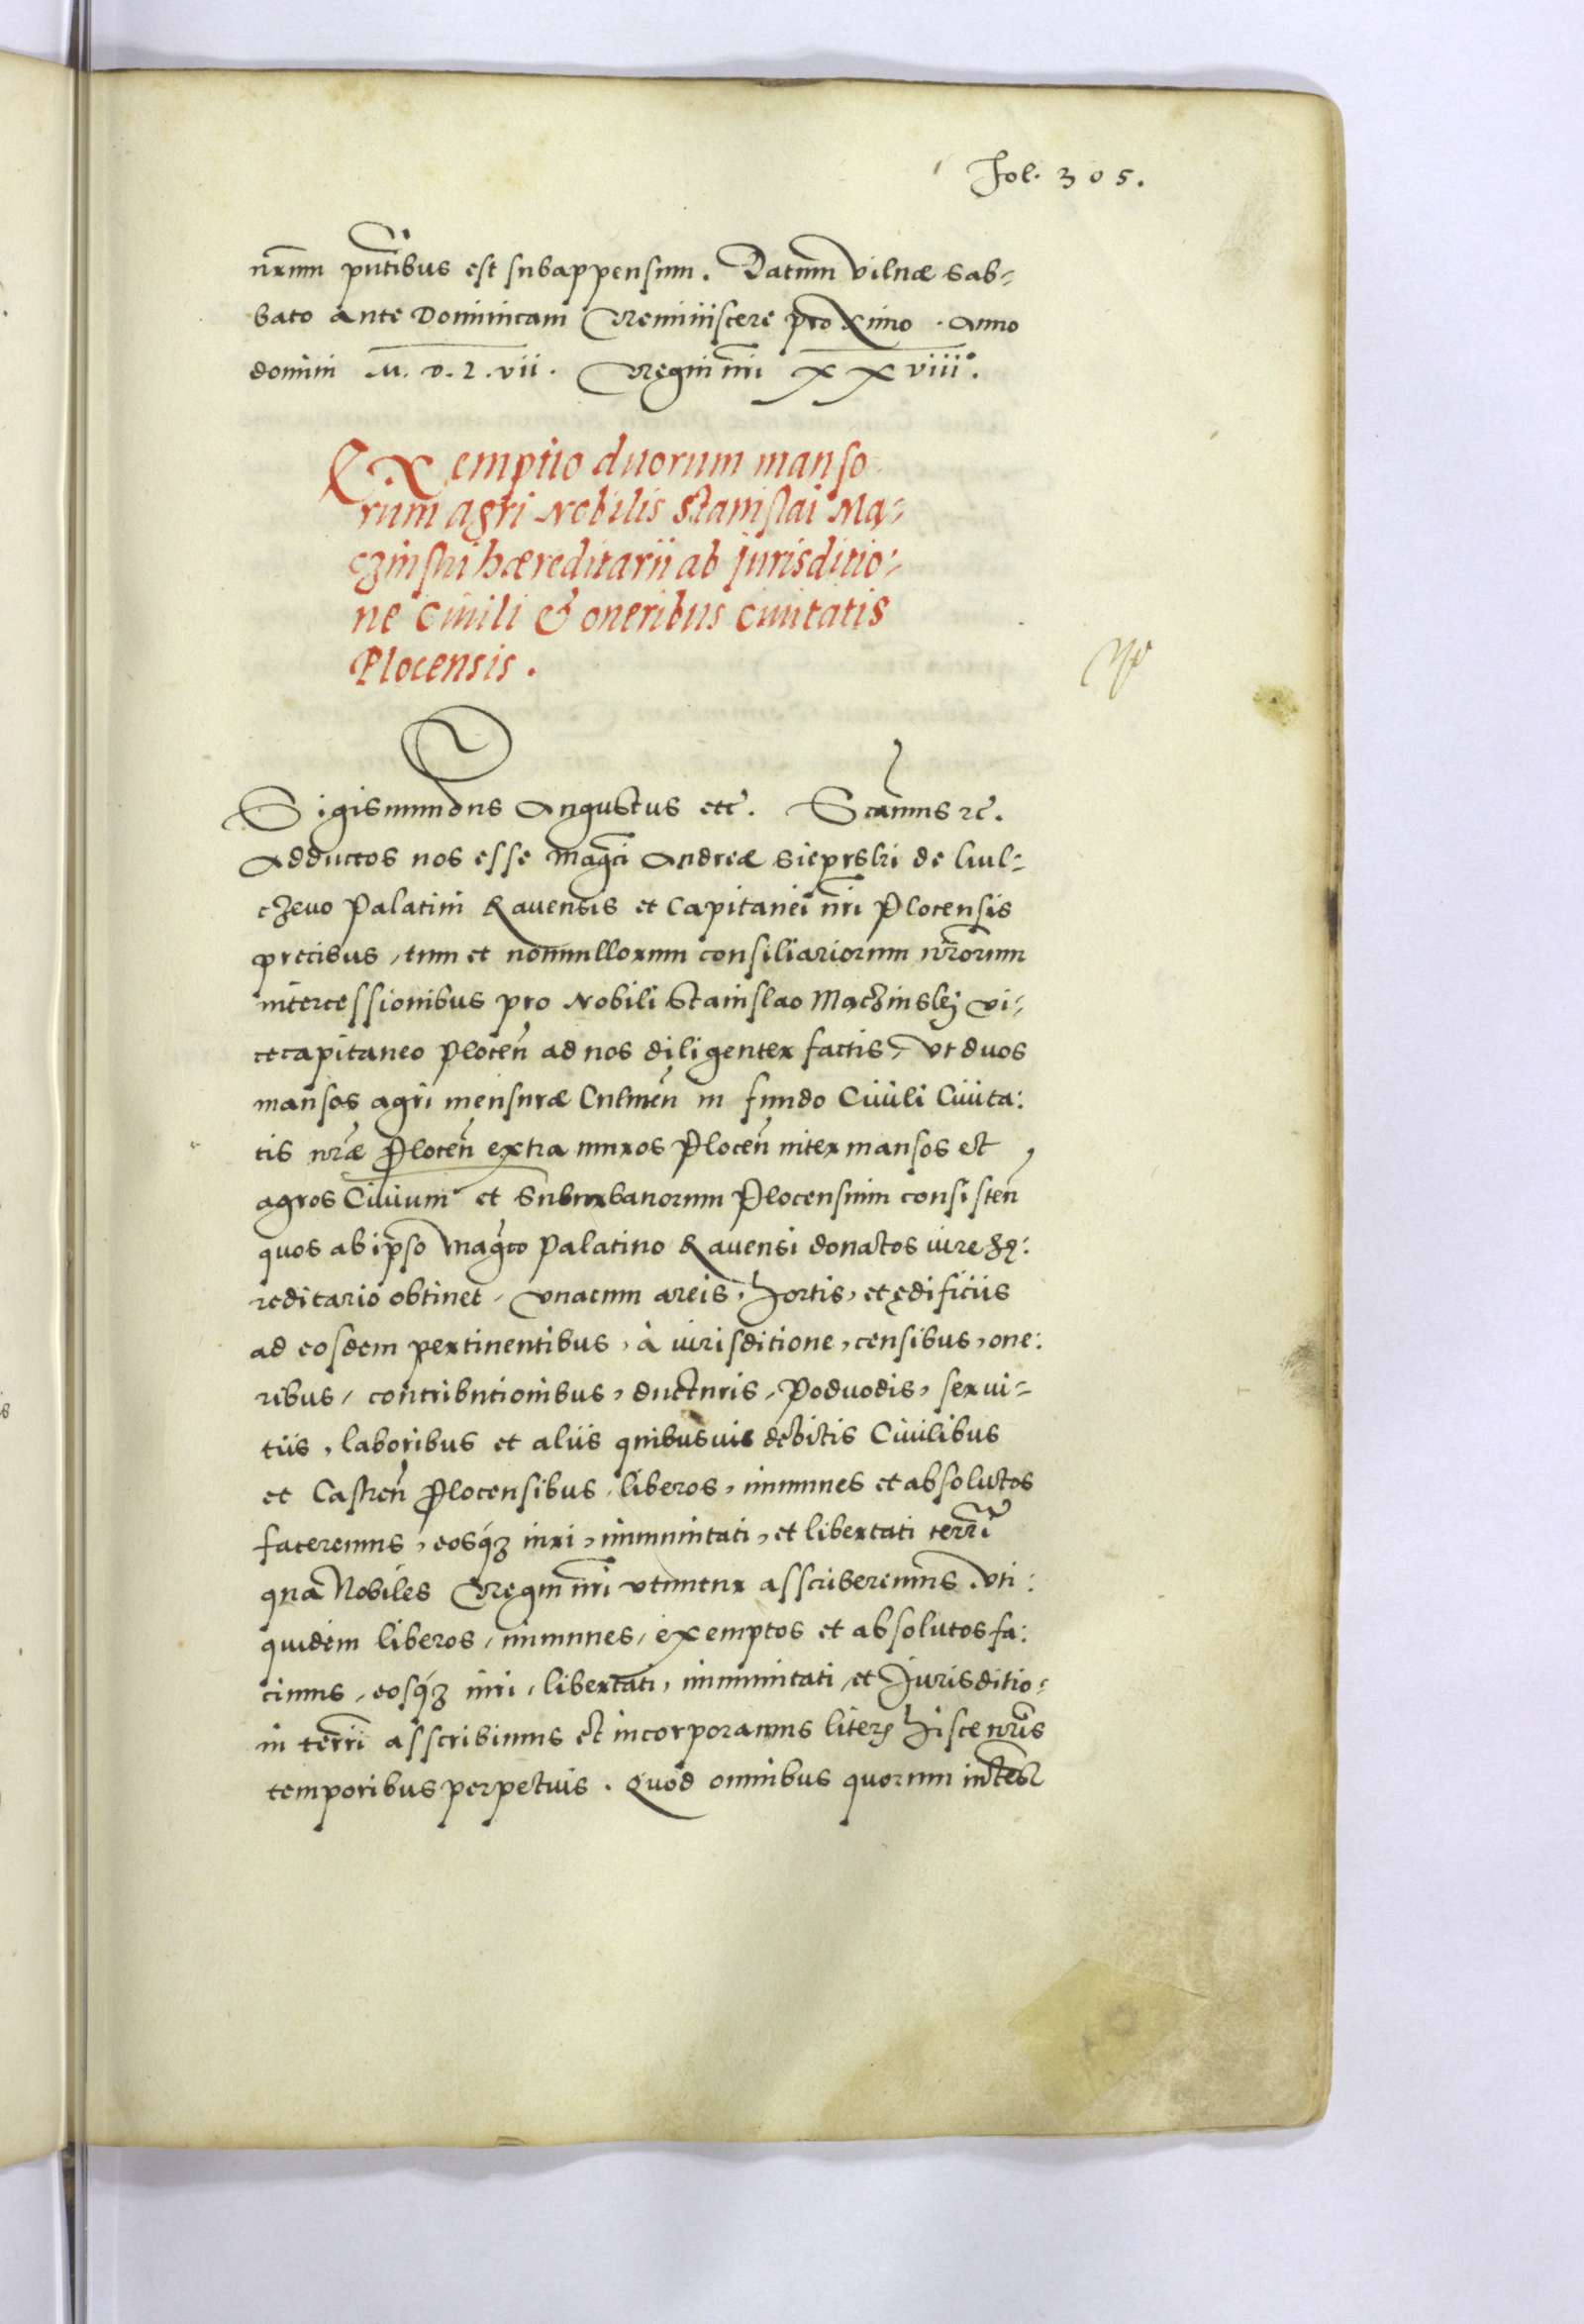 Fol. 305.
nr̃um pñtibus est subappensum. Datum Vilnæ Sab-
bato ante Dominicam Reminiscere proximo. Anno
domini M. D. L. vii. Regni nr̃i XXviii°.
Exemptio duorum manso
rum agri Nobilis Stanislai Ma-
czinski hæreditarii ab jurisditio-
ne Civili & oneribus Civitatis
Plocensis.
Sigismundus Augustus etc̃. Scimus rc̃.
Adductos nos esse Magc̃i Andreæ Sieprski de Gul-
czevo Palatini Ravensis et Capitanei nr̃i Plocensis
precibus, tum et nonnullorum consiliariorum nr̃orum
intercessionibus pro Nobili Stanislao Maczinskj vi-
cecapitaneo Plocen̄ ad nos diligenter factis, Vt duos
mansos agri mensuræ Culmen̄ in fundo Civili Civita:
tis nr̃æ Plocen̄ extra muros Plocen̄ inter mansos et
agros Civium et Suburbanorum Plocensium consisten̄
quos ab ipso Magc̃o Palatino Ravensi donatos iure hę:
reditario obtinet, Vnacum areis, hortis, et ędificiis
ad eosdem pertinentibus, à iurisditione, censibus, one:
ribus, contributionibus, ducturis, Podvodis, servi-
tiis, laboribus et aliis quibusvis debitis Civilibus
et Castren̄ Plocensibus, liberos, immunes et absolutos
faceremus, eosq́ꝫ iuri, immunitati, et libertati terrr̃i
qua Nobiles Regni nr̃i vtuntur asscriberemus. Vti:
quidem liberos, immunes, exemptos et absolutos fa:
cimus, eosq́ꝫ iuri, libertati, immunitati et Jurisditio-
ni terr̃i asscribimus et incorporamus literis hisce nr̃is
temporibus perpetuis. Quod omnibus quorum intest